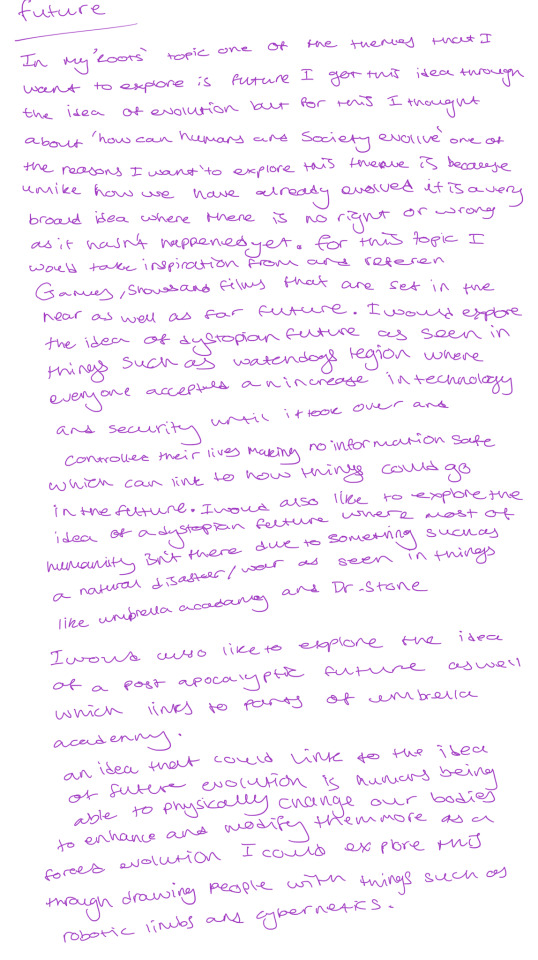 future
In my 'Roots' topic one of the themes that I
want to explore is future I got this idea through
the idea of evolution but for this I thought
about 'how can humans and Society evolve' one of
the reasons I want to explore this theme is because
unlike how we have already evolved it is a very
broad idea where there is no right or wrong
as it hasn't happened yet. for this topic I
would take inspiration from and referen
Games, shows and films that are set in the
near as well as far future. I would explore
the idea of dystopian future as seen in
things such as watchdogs legion where
everyone accepted an increase in technology
and security until it took over and
controlled their lives making no information safe
which can link to how things could go
in the future. I would also like to explore the
idea of a dystopian future where most of
humanity isn't there due to something such as
a natural disaster/war as seen in things
like umbrella academy and Dr-Stone
I would also like to explore the idea
of a post apocalyptic future aswell
which links to parts of umbrella
academy.
an idea that could link to the idea
of future evolution is humans being
able to physically change our bodies
to enhance and modify them more as a
forced evolution I could explore this
through drawing people with things such as
robotic limbs and cybernetics.